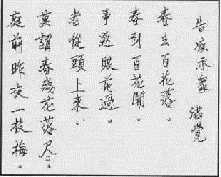 告疾示眾 滿覺
春去百花落
春到百花開
事逐眼前過
老從頭上來
莫謂春殘花落尽
庭前昨夜一枝梅